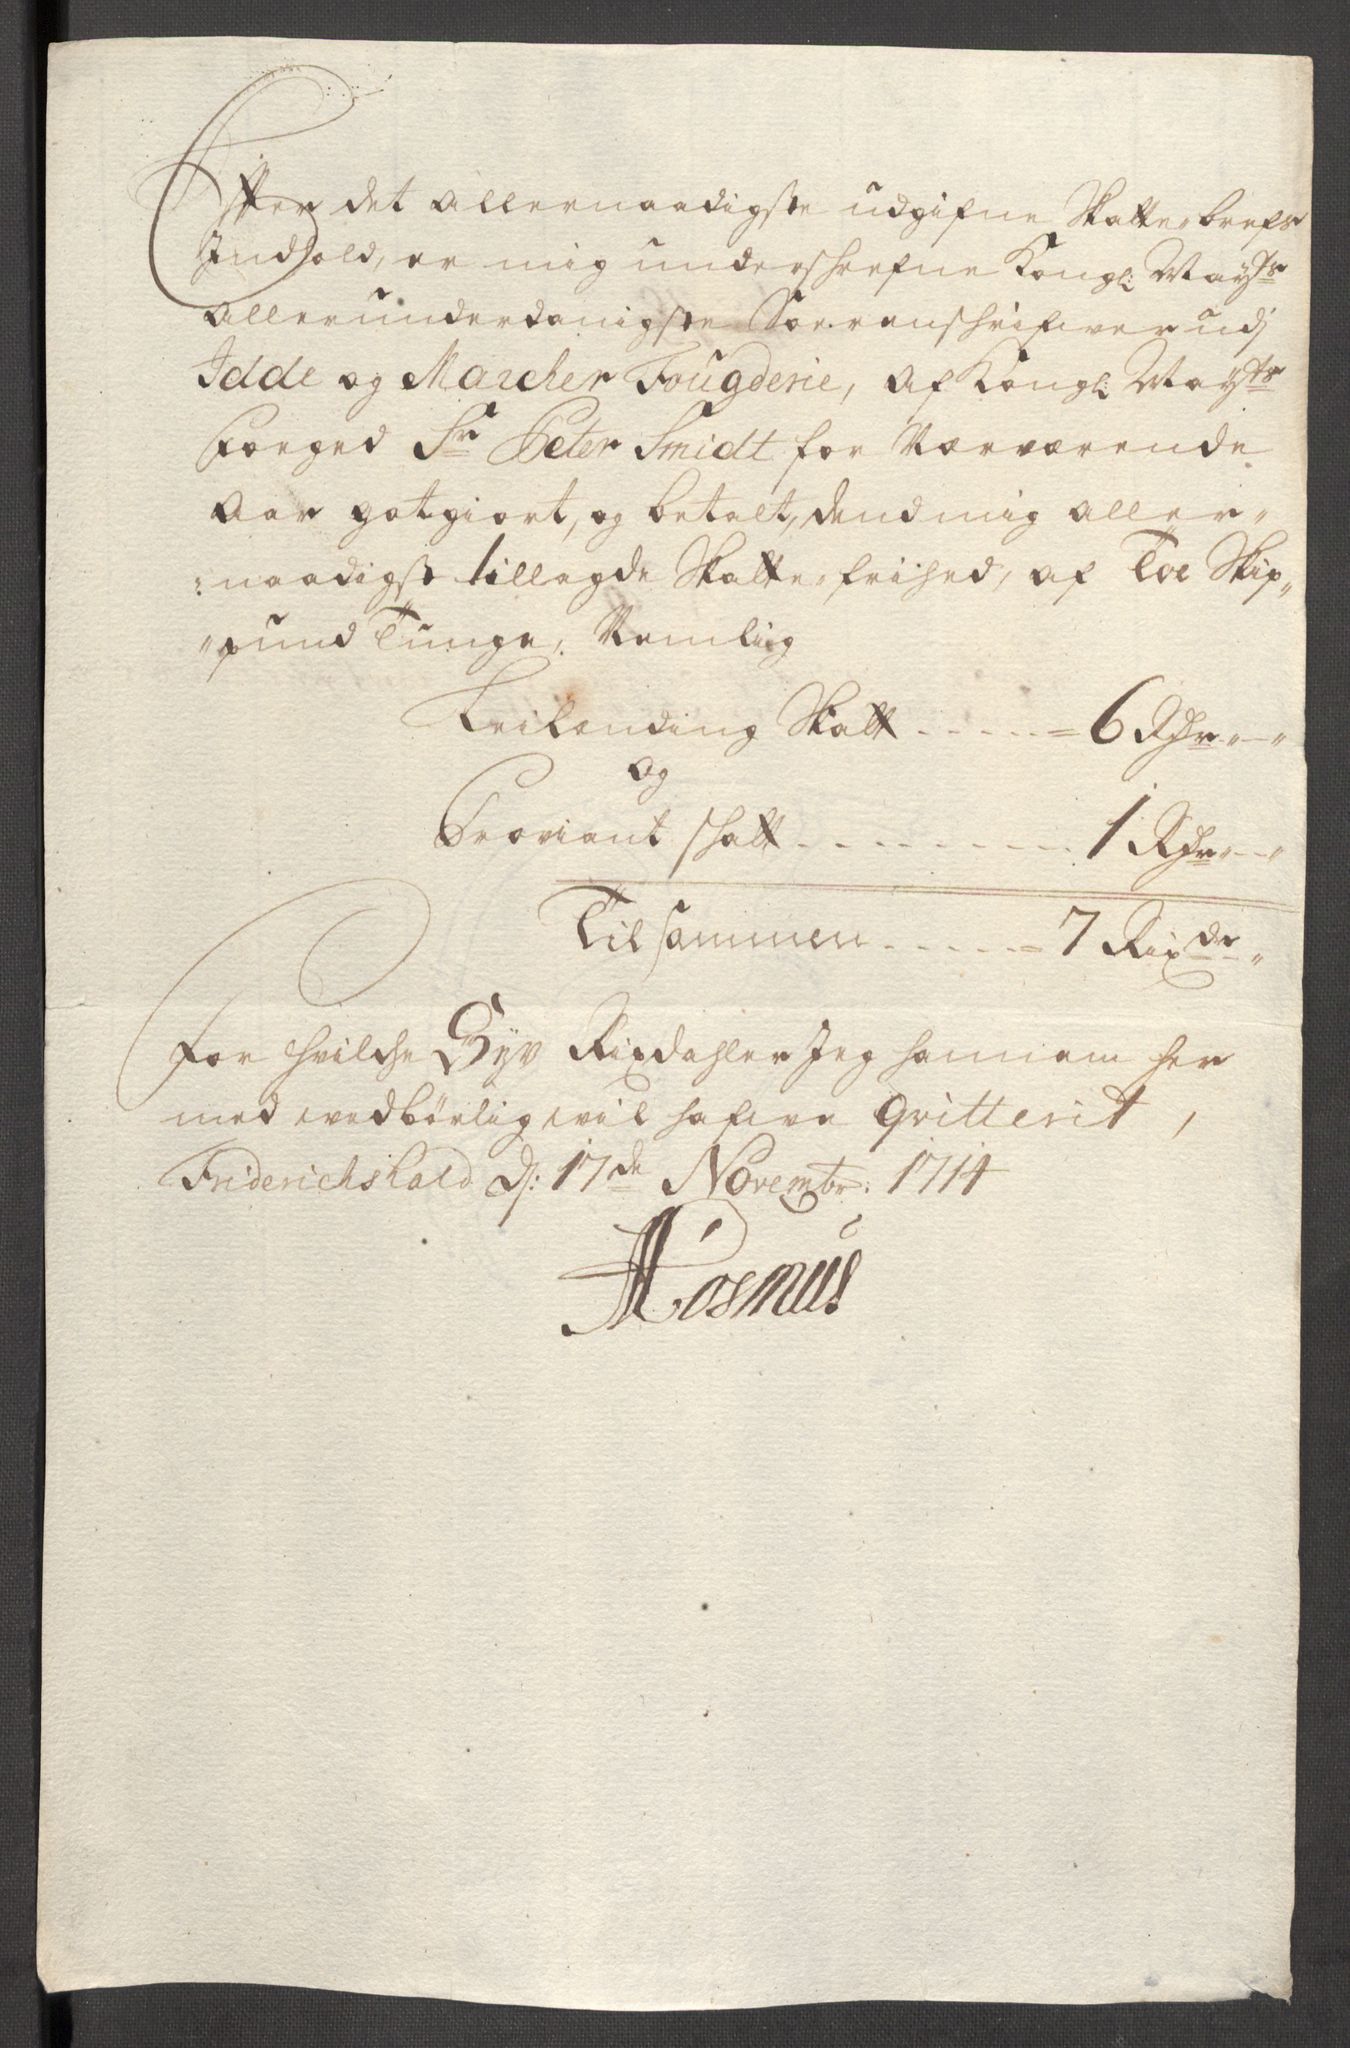 Efter det allernaadigste udgifne Skatte-brefs
Indhold, er mig underschrefne Kongl: Mayts
allerunderdanigste Sorrenschrifver udj
Idde og Marcher Fougderie, af Kongl: Mayts
Foeged Sr Peter Smidt for Nærværende
Aar gotgiort, og betalt, dend mig aller-
naadigst tillagde Skatte-frihed, af Toe Skip-
pund Tunge, Nemlig
Skatt ..... = 6 Rdr
og
Proviant schatt ......... 1 Rdr
Tilsammen ..... = 7 Rixdr
For hvilche Syv Rixdahler Jeg hannem her
med wedbørlig wil hafve qvitterit,
Friderichshald d: 17de Novembr: 1714